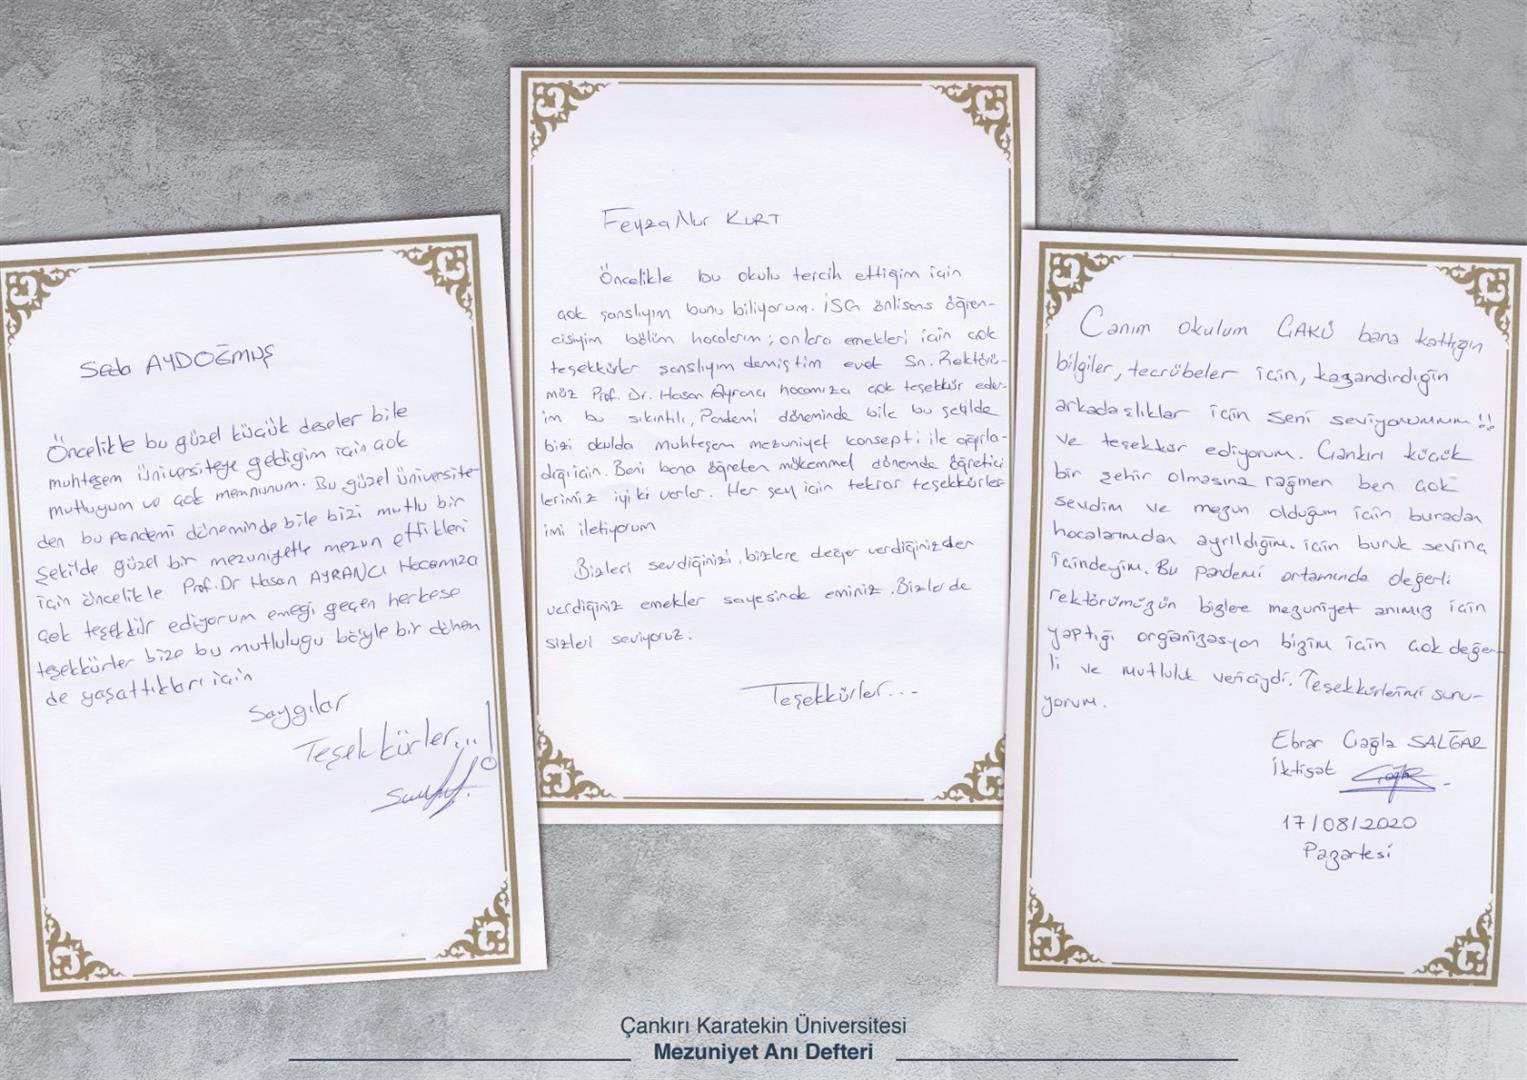 Seda AYDOĞMUŞ
Öncelikle bu güzel küçük deseler bile
muhteşem üniversiteye geldiğim için çok
mutluyum ve çok memnunum. Bu güzel üniversite-
den bu pandemi döneminde bile bizi mutlu bir
şekilde güzel bir mezuniyetle mezun ettikleri
için öncelikle Prof. Dr Hasan AYRANCI Hocamıza
çok teşekkür ediyorum emeği geçen herkese
teşekkürler bize bu mutluluğu böyle bir dönem
de yaşattıkları için
Saygılar
Teşekkürler...!
Feyza Nur KURT
Öncelikle bu okulu tercih ettiğim için
çok şanslıyım bunu biliyorum. İSG önlisans öğren-
cisiyim bölüm hocalarım; onlara emekleri için çok
teşekkürler şanslıyım demiştim evet Sn. Rektörü-
müz Prof. Dr. Hasan Ayrancı hocamıza çok teşekkür eder-
im bu sıkıntılı, Pandemi döneminde bile bu şekilde
bizi okulda muhteşem mezuniyet konsepti ile ağırla-
dığı için. Beni bana öğreten mükemmel dönemde öğretici
lerimiz iyi ki varlar. Her şey için tekrar teşekkürler-
imi iletiyorum
Bizleri sevdiğinizi, bizlere değer verdiğinizden
verdiğiniz emekler sayesinde eminiz. Bizler de
sizleri seviyoruz.
Teşekkürler...
Canım okulum ÇAKÜ bana kattığın
bilgiler, tecrübeler için, kazandırdığın
arkadaşlıklar için seni seviyorumm!!
ve teşekkür ediyorum. Çankırı küçük
bir şehir olmasına rağmen ben çok
sevdim ve mezun olduğum için buradan
hocalarımdan ayrıldığım için buruk sevinç
içindeyim. Bu pandemi ortamında değerli
rektörümüzün bizlere mezuniyet anımız için
yaptığı organizasyon bizim için çok değer-
li ve mutluluk vericiydi. Teşekkürlerimi sunu-
yorum.
Ebrar Çağla SALĞAR
İktisat
17/08/2020
Pazartesi
Çankırı Karatekin Üniversitesi
Mezuniyet Anı Defteri